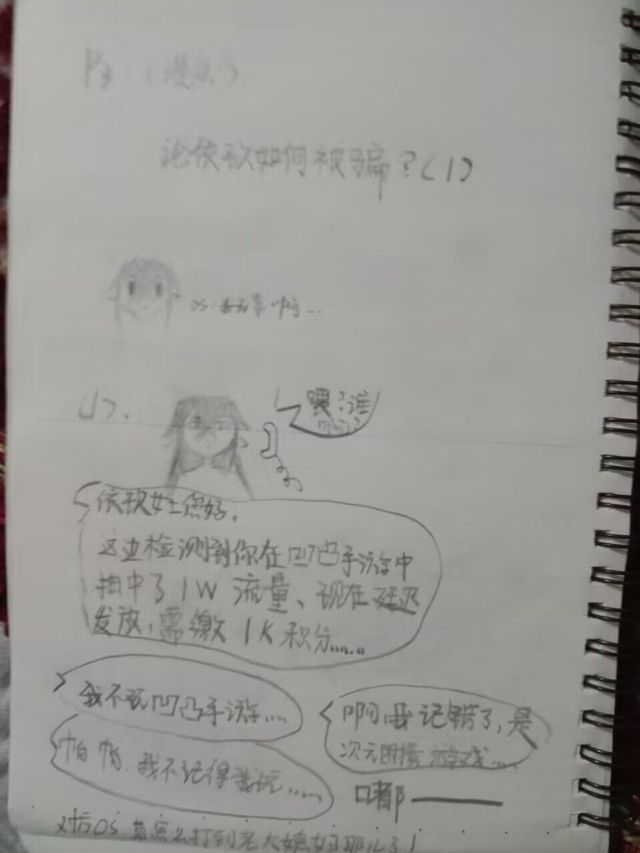 P3 (漫点)
论依玖如何被骗？(1)
OS：
(1)、
喂？谁
依玖女士您好，
这边检测到你在凹凸手游中
抽中了1W流量、现在延迟
发放，需缴1K积分……
我不玩凹凸手游……
啊我记错了，是
次元 游戏…
帕帕、我不记得我玩……
嘟——
对方OS 怎么打到老大 那儿了！